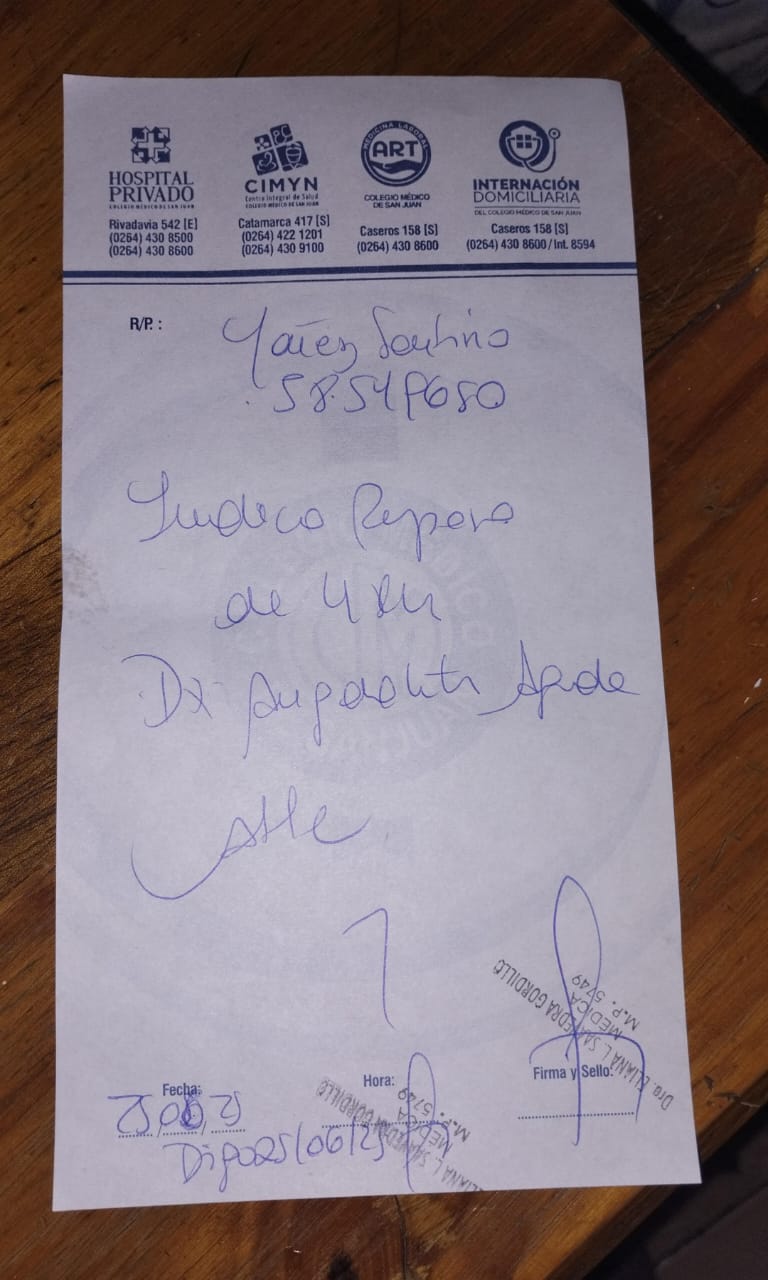 HOSPITAL
PRIVADO
COLEGIO MÉDICO DE SAN JUAN
Rivadavia 542 [E]
(0264) 430 8500
(0264) 430 8600
PC
CIMYN
Centro Integral de Salud
COLEGIO MÉDICO DE SAN JUAN
Catamarca 417 [S]
(0264) 422 1201
(0264) 430 9100
MEDICINA LABORAL
ART
COLEGIO MÉDICO
DE SAN JUAN
Caseros 158 [S]
(0264) 430 8600
INTERNACIÓN
DOMICILIARIA
DEL COLEGIO MÉDICO DE SAN JUAN
Caseros 158 [S]
(0264) 430 8600 / Int. 8594
R/P. :
Yañez Santino
Indico Reposo
de 48h
Dx Angina
Fecha:
25/06/25
Hora:
Firma y Sello:
Digo 25/06/25
Dra. LILIANA I. SAAVEDRA GORDILLO
MÉDICA
M.P. 5749
LILIANA I. SAAVEDRA GORDILLO
MÉDICA
M.P. 5749